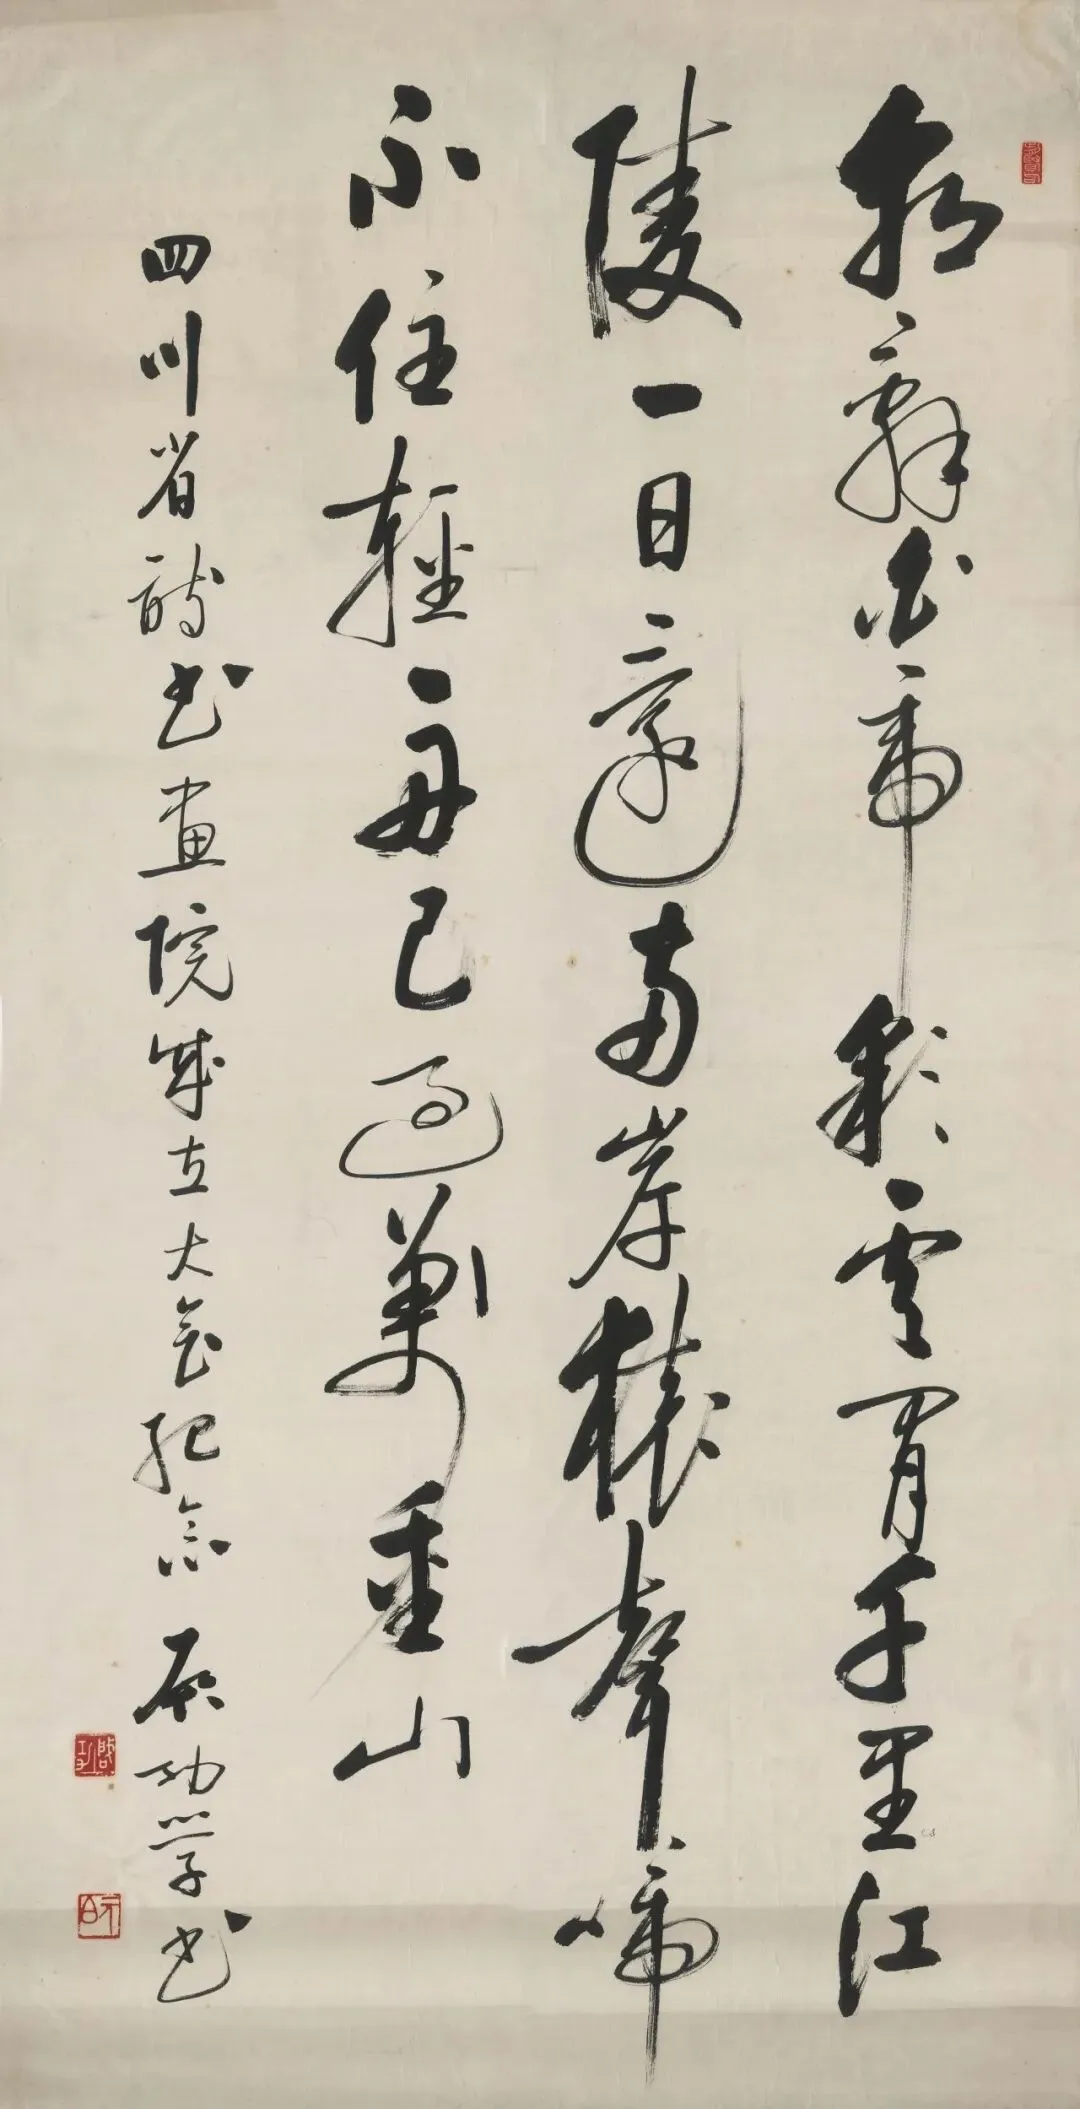 朝辭白帝彩雲間千里江
陵一日還兩岸猿聲啼
不住輕舟已過萬重山
四川省詩書畫院成立大會紀念 啟功學書
啟功
元白